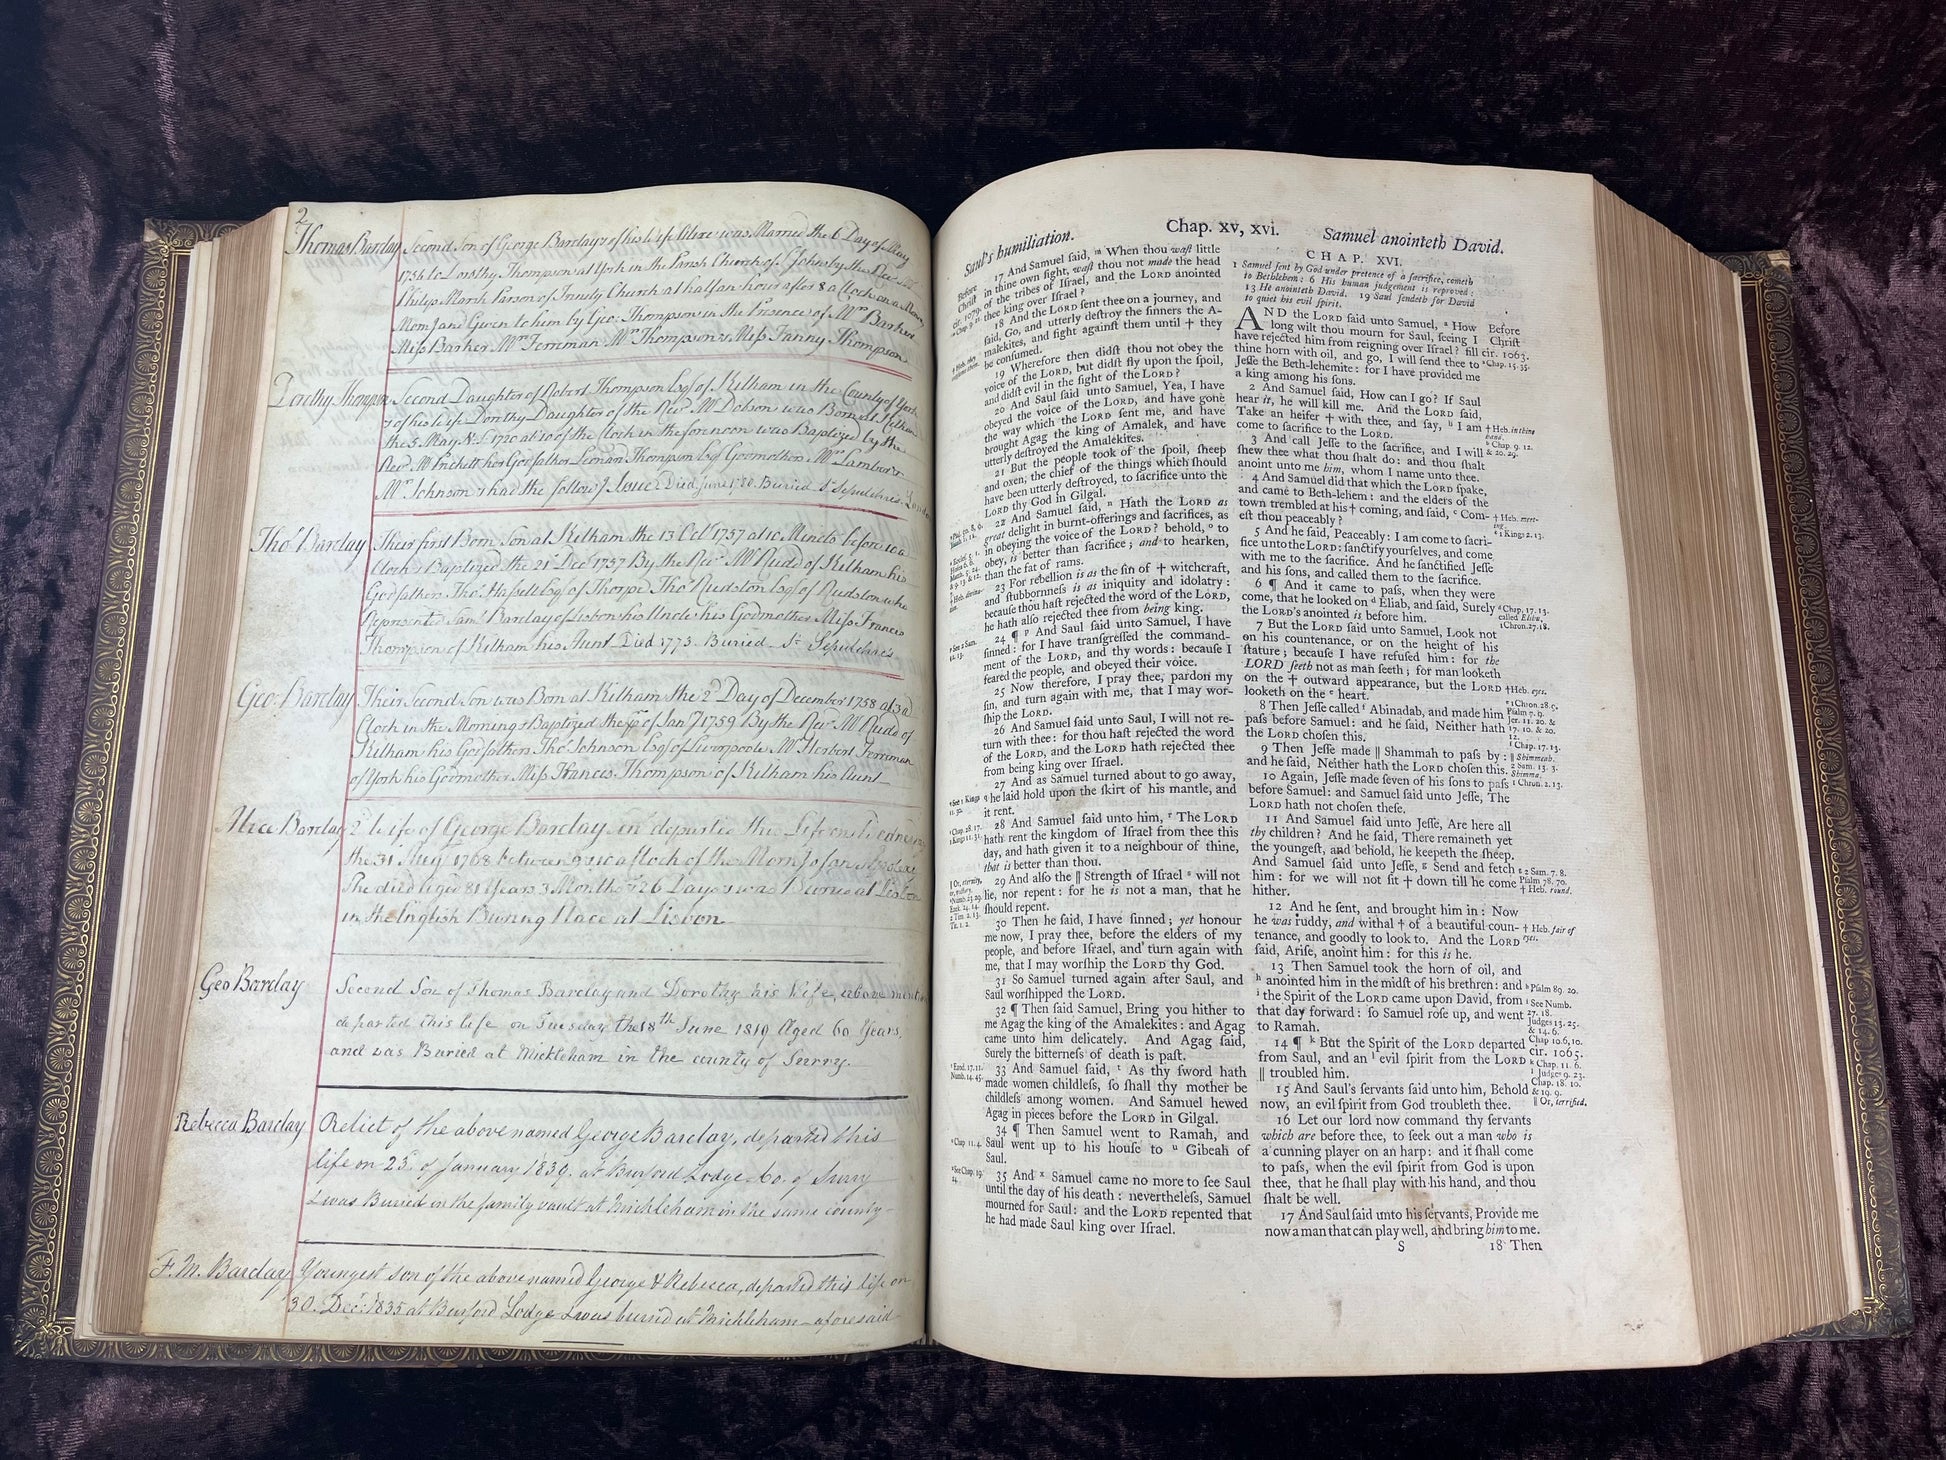 2
Thomas Barclay Second Son of George Barclay & of his wife was Married the 6 Day of May
1756 to Dorothy Thompson at York in the Parish Church of St. Johns by the Revd
Philip Marsh Parson of Trinity Church at half an hour after 8 a Clock on a
Morn: and Given to him by Geo: Thompson in the Presence of Mrs Barker
Miss Barker Mrs Ferriman Mr Thompson & Miss Fanny Thompson
Dorothy Thompson Second Daughter of Robert Thompson Esqr of Kilham in the County of York
& of his wife Dorothy Daughter of the Revd Mr Dobson was Born at Kilham
the 5. May N:S. 1720 at 10 of the Clock in the forenoon was Baptized by the
Revd Mr Prickett her Godfather Leonan Thompson Esqr Godmothers Mrs Lambert
Mrs Johnson & had the follow.g Issue Died June 1st 80 Buried St Sepulchres London
Thos Barclay Their first Born Son at Kilham the 13 Octr 1757 at 10 Minets before 10 a
Clock & Baptized the 21 Decr 1757 By the Revd Mr Rudd of Kilham his
Godfathers Thos Hassell Esqr of Thorpe Thos Rudston Esqr of Rudston who
Represented Saml Barclay of Lisbon his Uncle his Godmother Miss Frances
Thompson of Kilham his Aunt Died 1773. Buried St Sepulchre's
Geo: Barclay Their Second Son was Born at Kilham the 2d Day of December 1758 at 3 a
Clock in the Morning & Baptized the of Jany 1759 By the Revd Mr Rudd of
Kilham his Godfathers Thos Johnson Esqr of Liverpoole Mr Herbert Ferriman
of York his Godmother Miss Frances Thompson of Kilham his Aunt
Alice Barclay 2d wife of George Barclay senr departed this Life on
the 31 Augt 1768 between 9 & 10 a Clock of the Morng of an Apoplexy
She died aged 81 Years 3 Months & 26 Days & was Buried at Lisbon
in the English Buring Place at Lisbon
Geo Barclay Second Son of Thomas Barclay and Dorothy his Wife, above mention
departed this life on Tuesday the 8th June 1819 Aged 60 Years,
and was Buried at Mickleham in the county of Surry.
Rebecca Barclay Relict of the above named George Barclay, departed this
life on 23d of January 1830. at Burford Lodge Co. of Surry
& was Buried in the family vault at Mickleham in the same county
F. M. Barclay Youngest son of the above named George & Rebecca, departed this life on
30. Decr. 1835 at Burford Lodge & was buried at Mickleham aforesaid
Saul's humiliation. Chap. xv, xvi. Samuel anointeth David.
Before
Christ
cir. 1079.
17 And Samuel said, ᵐ When thou wast little
in thine own sight, wast thou not made the head
of the tribes of Israel, and the LORD anointed
thee king over Israel?
18 And the LORD sent thee on a journey, and
said, Go, and utterly destroy the sinners the A-
malekites, and fight against them until † they
be consumed.
19 Wherefore then didst thou not obey the
voice of the LORD, but didst fly upon the spoil,
and didst evil in the sight of the LORD?
20 And Saul said unto Samuel, Yea, I have
obeyed the voice of the LORD, and have gone
the way which the LORD sent me, and have
brought Agag the king of Amalek, and have
utterly destroyed the Amalekites.
21 But the people took of the spoil, sheep
and oxen, the chief of the things which should
have been utterly destroyed, to sacrifice unto the
LORD thy God in Gilgal.
22 And Samuel said, ⁿ Hath the LORD as
great delight in burnt-offerings and sacrifices, as
in obeying the voice of the LORD? behold, ᵒ to
obey, is better than sacrifice; and to hearken,
than the fat of rams.
23 For rebellion is as the sin of † witchcraft,
and stubbornness is as iniquity and idolatry:
because thou hast rejected the word of the LORD,
he hath also rejected thee from being king.
24 ¶ ᵖ And Saul said unto Samuel, I have
sinned: for I have transgressed the command-
ment of the LORD, and thy words: because I
feared the people, and obeyed their voice.
25 Now therefore, I pray thee, pardon my
sin, and turn again with me, that I may wor-
ship the LORD.
26 And Samuel said unto Saul, I will not re-
turn with thee: for thou hast rejected the word
of the LORD, and the LORD hath rejected thee
from being king over Israel.
27 And as Samuel turned about to go away,
he laid hold upon the skirt of his mantle, and
it rent.
28 And Samuel said unto him, ʳ The LORD
hath rent the kingdom of Israel from thee this
day, and hath given it to a neighbour of thine,
that is better than thou.
29 And also the ‖ Strength of Israel ˢ will not
lie, nor repent: for he is not a man, that he
should repent.
30 Then he said, I have sinned; yet honour
me now, I pray thee, before the elders of my
people, and before Israel, and turn again with
me, that I may worship the LORD thy God.
31 So Samuel turned again after Saul, and
Saul worshipped the LORD.
32 ¶ Then said Samuel, Bring you hither to
me Agag the king of the Amalekites: and Agag
came unto him delicately. And Agag said,
Surely the bitterness of death is past.
33 And Samuel said, ᵗ As thy sword hath
made women childless, so shall thy mother be
childless among women. And Samuel hewed
Agag in pieces before the LORD in Gilgal.
34 ¶ Then Samuel went to Ramah, and
Saul went up to his house to ᵘ Gibeah of
Saul.
35 And ˣ Samuel came no more to see Saul
until the day of his death: nevertheless, Samuel
mourned for Saul: and the LORD repented that
he had made Saul king over Israel.
CHAP. XVI.
1 Samuel sent by God under pretence of a sacrifice, cometh
to Bethlehem: 6 His human judgement is reproved:
13 He anointeth David. 19 Saul sendeth for David
to quiet his evil spirit.
AND the LORD said unto Samuel, ᵃ How
long wilt thou mourn for Saul, seeing I
have rejected him from reigning over Israel? fill
thine horn with oil, and go, I will send thee to
Jesse the Beth-lehemite: for I have provided me
a king among his sons.
2 And Samuel said, How can I go? If Saul
hear it, he will kill me. And the LORD said,
Take an heifer † with thee, and say, ᵇ I am
come to sacrifice to the LORD.
3 And call Jesse to the sacrifice, and I will
shew thee what thou shalt do: and thou shalt
anoint unto me him, whom I name unto thee.
4 And Samuel did that which the LORD spake,
and came to Beth-lehem: and the elders of the
town trembled at his † coming, and said, ᶜ Com-
est thou peaceably?
5 And he said, Peaceably: I am come to sacri-
fice unto the LORD: sanctify yourselves, and come
with me to the sacrifice. And he sanctified Jesse
and his sons, and called them to the sacrifice.
6 ¶ And it came to pass, when they were
come, that he looked on ᵈ Eliab, and said, Surely
the LORD's anointed is before him.
7 But the LORD said unto Samuel, Look not
on his countenance, or on the height of his
stature; because I have refused him: for the
LORD seeth not as man seeth; for man looketh
on the † outward appearance, but the LORD
looketh on the ᵉ heart.
8 Then Jesse called ᶠ Abinadab, and made him
pass before Samuel: and he said, Neither hath
the LORD chosen this.
9 Then Jesse made ‖ Shammah to pass by:
and he said, Neither hath the LORD chosen this.
10 Again, Jesse made seven of his sons to pass
before Samuel: and Samuel said unto Jesse, The
LORD hath not chosen these.
11 And Samuel said unto Jesse, Are here all
thy children? And he said, There remaineth yet
the youngest, and behold, he keepeth the sheep.
And Samuel said unto Jesse, ᵍ Send and fetch
him: for we will not sit † down till he come
hither.
12 And he sent, and brought him in: Now
he was ruddy, and withal † of a beautiful coun-
tenance, and goodly to look to. And the LORD
said, Arise, anoint him: for this is he.
13 Then Samuel took the horn of oil, and
ʰ anointed him in the midst of his brethren: and
ⁱ the Spirit of the LORD came upon David, from
that day forward: so Samuel rose up, and went
to Ramah.
14 ¶ ᵏ But the Spirit of the LORD departed
from Saul, and an ˡ evil spirit from the LORD
‖ troubled him.
15 And Saul's servants said unto him, Behold
now, an evil spirit from God troubleth thee.
16 Let our lord now command thy servants
which are before thee, to seek out a man who is
a cunning player on an harp: and it shall come
to pass, when the evil spirit from God is upon
thee, that he shall play with his hand, and thou
shalt be well.
17 And Saul said unto his servants, Provide me
now a man that can play well, and bring him to me.
S 18 Then
Before
Christ
cir. 1063.
ᵃ Chap. 15. 35.
† Heb. in thine
hand.
ᵇ Chap. 9. 12.
& 20. 29.
† Heb. meet-
ing.
ᶜ 1 Kings 2. 13.
ᵈ Chap. 17. 13.
called Elihu,
1 Chron. 27. 18.
† Heb. eyes.
ᵉ 1 Chron. 28. 9.
Psalm 7. 9.
Jer. 11. 20. &
17. 10. & 20.
12.
ᶠ Chap. 17. 13.
‖ Shimmeah.
2 Sam. 13. 3.
Shimma,
1 Chron. 2. 13.
ᵍ 2 Sam. 7. 8.
Psalm 78. 70.
† Heb. round.
† Heb. fair of
eyes.
ʰ Psalm 89. 20.
ⁱ See Numb.
27. 18.
Judges 13. 25.
& 14. 6.
Chap 10. 6, 10.
cir. 1065.
ᵏ Chap. 11. 6.
ˡ Judges 9. 23.
Chap. 18. 10.
& 19. 9.
‖ Or, terrified.